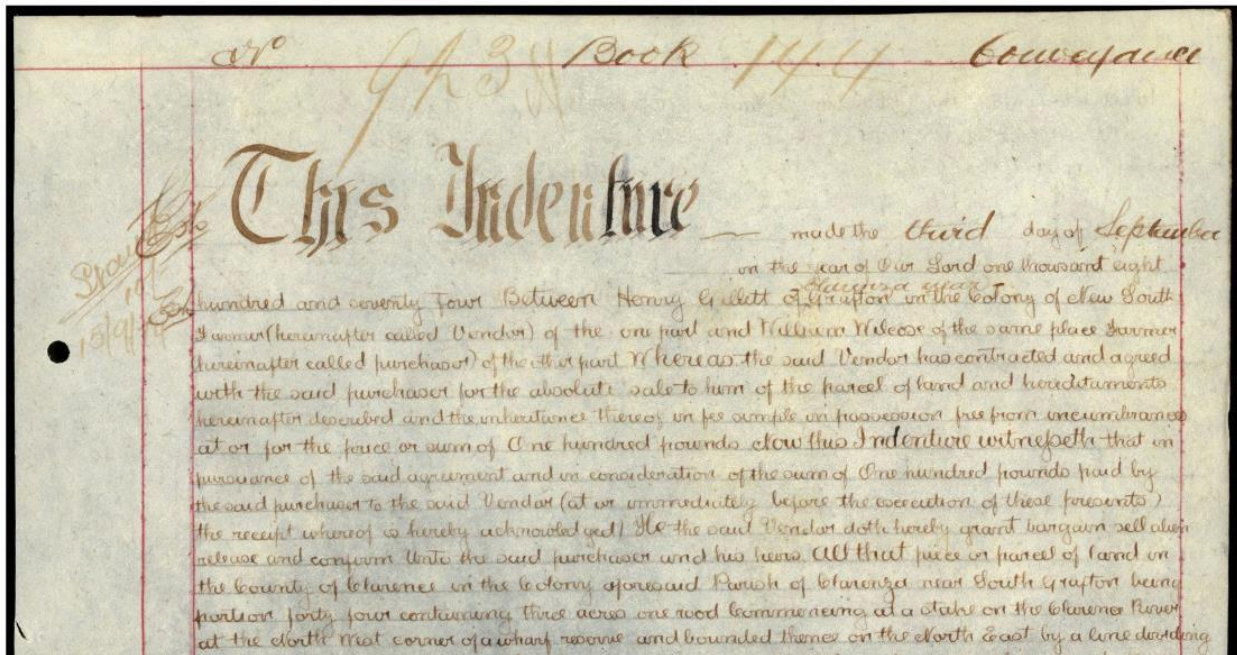 No 923 Book 144 Conveyance
This Indenture made the third day of September
in the year of Our Lord one thousand eight
Clarenza near
hundred and seventy four Between Henry Gillett of Grafton in the Colony of New South
Farmer (hereinafter called Vendor) of the one part and William Wilcox of the same place Farmer
(hereinafter called purchaser) of the other part Whereas the said Vendor has contracted and agreed
with the said purchaser for the absolute sale to him of the parcel of land and hereditaments
hereinafter described and the inheritance thereof in fee simple in possession free from incumbrances
at or for the price or sum of One hundred pounds Now this Indenture witnesseth that in
pursuance of the said agreement and in consideration of the sum of One hundred pounds paid by
the said purchaser to the said Vendor (at or immediately before the execution of these presents)
the receipt whereof is hereby acknowledged) He the said Vendor doth hereby grant bargain sell alien
release and confirm Unto the said purchaser and his heirs All that piece or parcel of land in
the County of Clarence in the Colony aforesaid Parish of Clarenza near South Grafton being
portion forty four containing three acres one rood Commencing at a stake on the Clarence River
at the North West corner of a wharf reserve and bounded thence on the North East by a line dividing
15/9/74